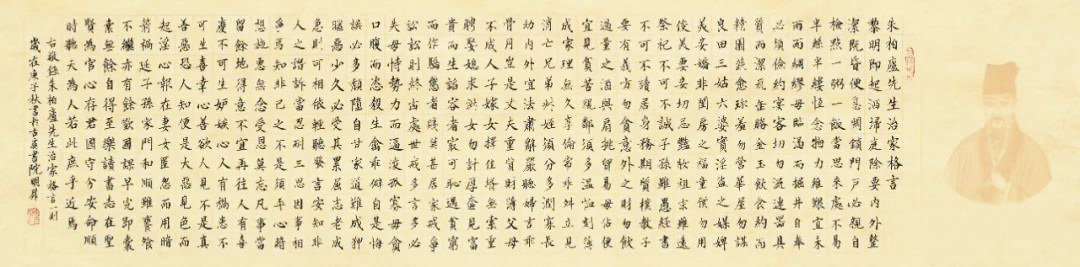 朱柏廬先生治家格言
黎明即起洒掃庭除要内外整
潔既昏便息關鎖門户必親自
檢點一粥一飯當思來處不易
半絲半縷恒念物力維艱宜未
雨而綢繆毋臨渴而掘井自奉
必須儉約宴客切勿流連器具
質而潔瓦缶勝金玉飲食約而
精園蔬愈珍羞勿營華屋勿謀
良田三姑六婆實淫盜之媒婢
美妾嬌非閨房之福童僕勿用
俊美妻妾切忌豔妝祖宗雖遠
祭祀不可不誠子孫雖愚經書
不可不讀居身務期質樸教子
要有義方勿貪意外之財勿飲
過量之酒與肩挑貿易毋佔便
宜見貧苦親鄰須多溫恤刻薄
成家理無久享倫常乖舛立見
消亡兄弟叔姪須分多潤寡長
幼內外宜法肅辭嚴聽婦言乖
骨肉豈是丈夫重貲財薄父母
不成人子嫁女擇佳婿無索重
聘娶媳求淑女勿計厚奩見富
貴而生諂容者最可恥遇貧窮
而作驕態者賤莫甚居家戒爭
訟訟則終凶處世戒多言言多必
失毋恃勢力而凌逼孤寡毋貪
口腹而恣殺生禽乖僻自是悔
誤必多頹惰自甘家道難成狎
暱惡少久必受其累屈志老成
急則可相依輕聽發言安知非
人之譖訴當忍耐三思因事相
爭焉知非己之不是須平心暗
想施惠無念受恩莫忘凡事當
留餘地得意不宜再往人有喜
慶不可生妒嫉心人有禍患不
可生喜幸心善欲人見不是真
善惡恐人知便是大惡見色而
起淫心報在妻女匿怨而用暗
箭禍延子孫家門和順雖饔飧
不繼亦有餘歡國課早完即囊
橐無餘自得至樂讀書志在聖
賢爲官心存君國守分安命順
時聽天爲人若此庶乎近焉
敬錄朱柏廬先生治家格言一則
歲在庚子秋書於古英書院明昇